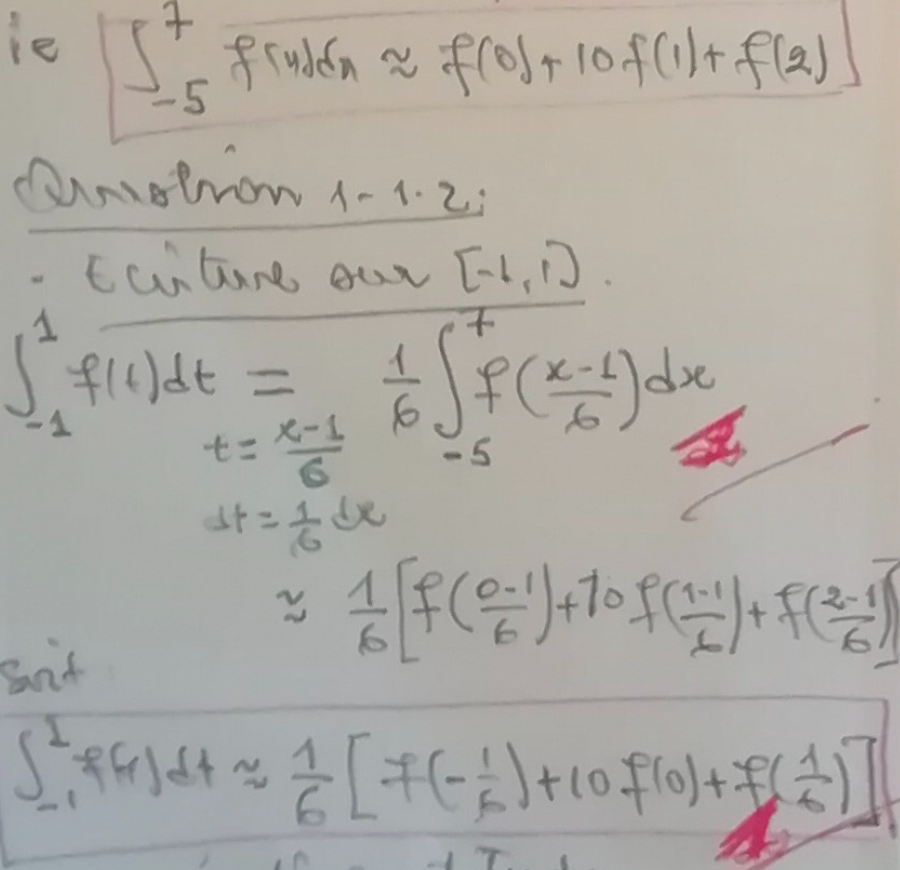 ie ∫_{-5}^{7} f(x)dx ≈ f(0)+10f(1)+f(2)
Question 1-1.2:
- Ecriture sur [-1,1].
∫_{-1}^{1} f(t)dt = 1/6 ∫_{-5}^{7} f((x-1)/6)dx
t = (x-1)/6
dt = 1/6 dx
≈ 1/6 [f((0-1)/6)+10f((1-1)/6)+f((2-1)/6)]
soit
∫_{-1}^{1} f(t)dt ≈ 1/6 [f(-1/6)+10f(0)+f(1/6)]